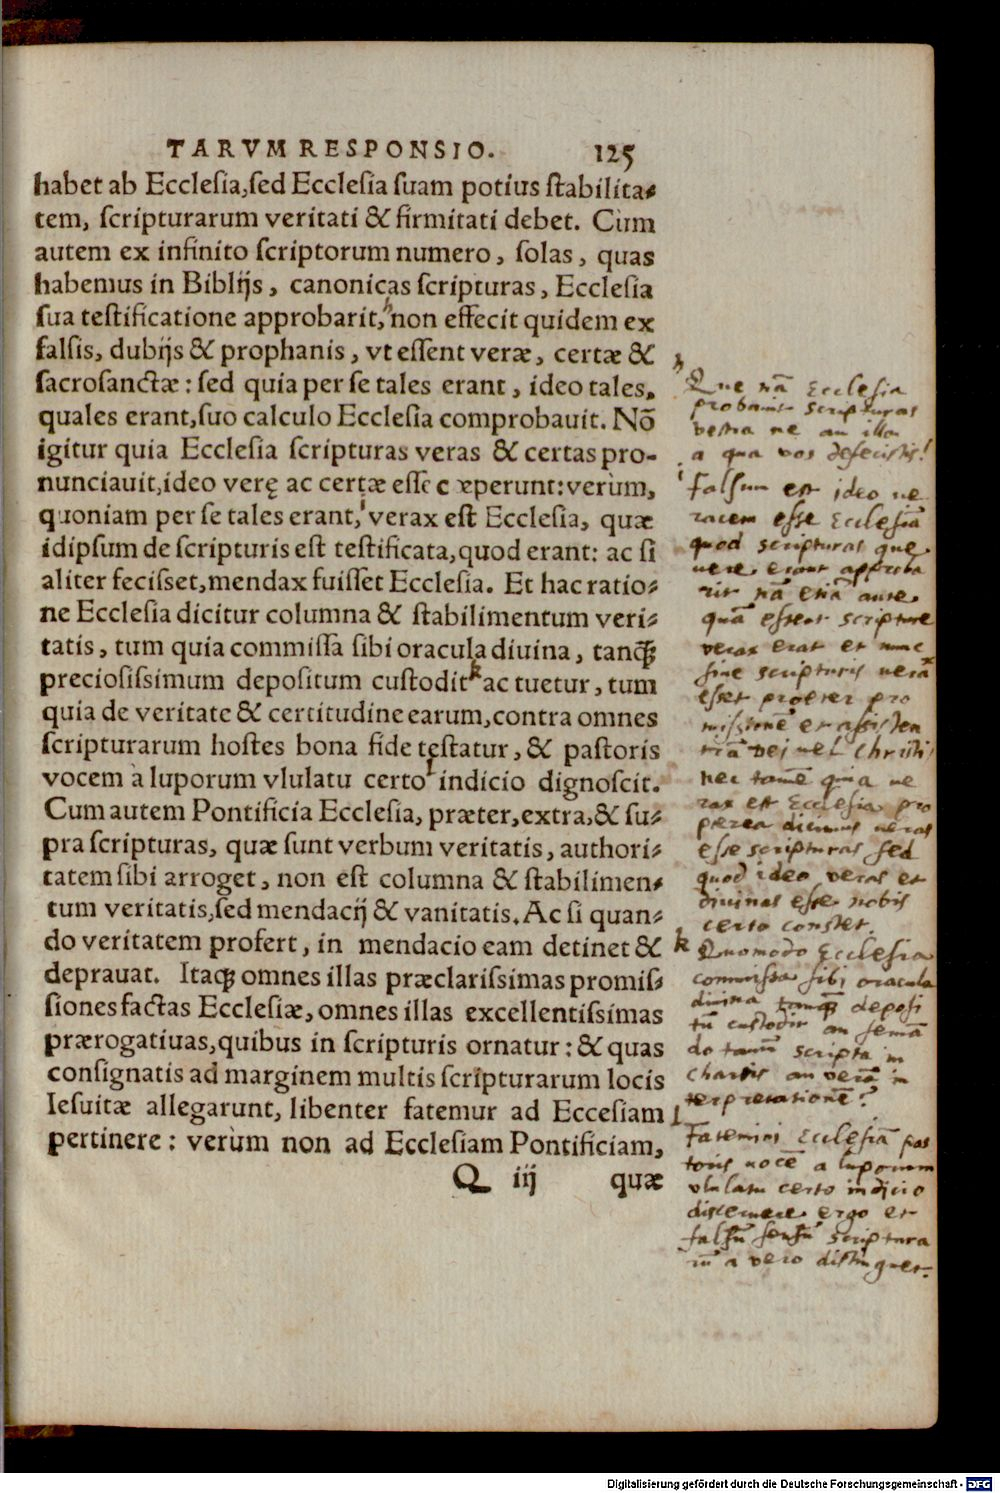 TARVM RESPONSIO. 125
habet ab Ecclesia, sed Ecclesia suam potius stabilita-
tem, scripturarum veritati & firmitati debet. Cùm
autem ex infinito scriptorum numero, solas, quas
habemus in Biblijs, canonicas scripturas, Ecclesia
sua testificatione approbarit, h non effecit quidem ex
falsis, dubijs & prophanis, vt essent veræ, certæ &
sacrosanctæ: sed quia per se tales erant, ideo tales,
quales erant, suo calculo Ecclesia comprobauit. Nõ
igitur quia Ecclesia scripturas veras & certas pro-
nunciauit, ideo verę ac certæ esse cœperunt: verùm,
quoniam per se tales erant, i verax est Ecclesia, quæ
idipsum de scripturis est testificata, quod erant: ac si
aliter fecisset, mendax fuisset Ecclesia. Et hac ratio-
ne Ecclesia dicitur columna & stabilimentum veri-
tatis, tum quia commissa sibi oracula diuina, tanqꝫ
preciosissimum depositum custodit k ac tuetur, tum
quia de veritate & certitudine earum, contra omnes
scripturarum hostes bona fide testatur, & pastoris
vocem à luporum vlulatu certo l indicio dignoscit.
Cum autem Pontificia Ecclesia, præter, extra, & su-
pra scripturas, quæ sunt verbum veritatis, authori-
tatem sibi arroget, non est columna & stabilimen-
tum veritatis, sed mendacij & vanitatis. Ac si quan-
do veritatem profert, in mendacio eam detinet &
deprauat. Itaqꝫ omnes illas præclarissimas promis-
siones factas Ecclesiæ, omnes illas excellentissimas
prærogatiuas, quibus in scripturis ornatur: & quas
consignatis ad marginem multis scripturarum locis
Iesuitæ allegarunt, libenter fatemur ad Eccesiam
pertinere: verùm non ad Ecclesiam Pontificiam,
Q iij quæ
h
Que nã Ecclesia
probauit scripturas
vestra ne an illa
a qua vos defecistis!
i
falsum est ideo ue
racem esse Ecclesiã
quod scripturas que
uere erant approba
rit nã etiã ante
quã essent scripture
verax erat et nunc
sine scripturis uerax
esset propter pro
missionẽ et assisten
tiã Dei uel Christi
nec tamẽ quia ue
rax est Ecclesia pro
pterea dicimus ueras
esse scripturas sed
quod ideo veras et
diuinas esse nobis
certo constet.
k Quomodo Ecclesia
commissa sibi oracula
diuina tanqꝫ deposi
tũ custodit an seruã
do tantũ scripta in
chartis an verã in
terpretationẽ?
l
Fatemini Ecclesiã pas
toris uocẽ a luporum
vlulatu certo indicio
discernere ergo et
falsũ sensũ scriptura
rũ a vero distinguet.
Digitalisierung gefördert durch die Deutsche Forschungsgemeinschaft - DFG